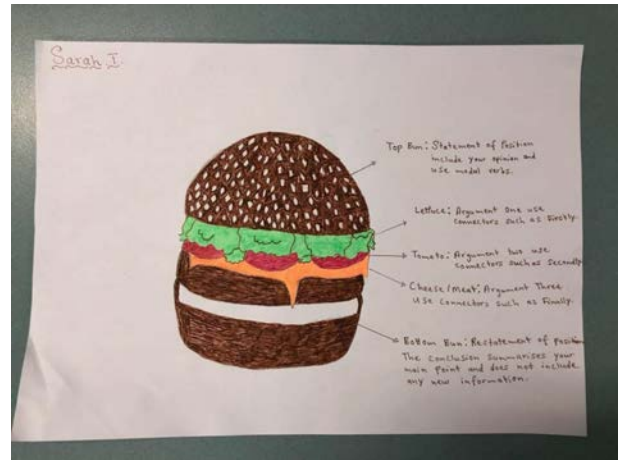 Sarah I.
Top Bun: Statement of Position
include your opinion and
use modal verbs.
Lettuce: Argument One use
connectors such as firstly.
Tomato: Argument two use
connectors such as Secondly
Cheese/Meat: Argument Three
Use connectors such as Finally.
Bottom Bun: Restatement of position
The conclusion summarises your
main point and does not include
any new information.